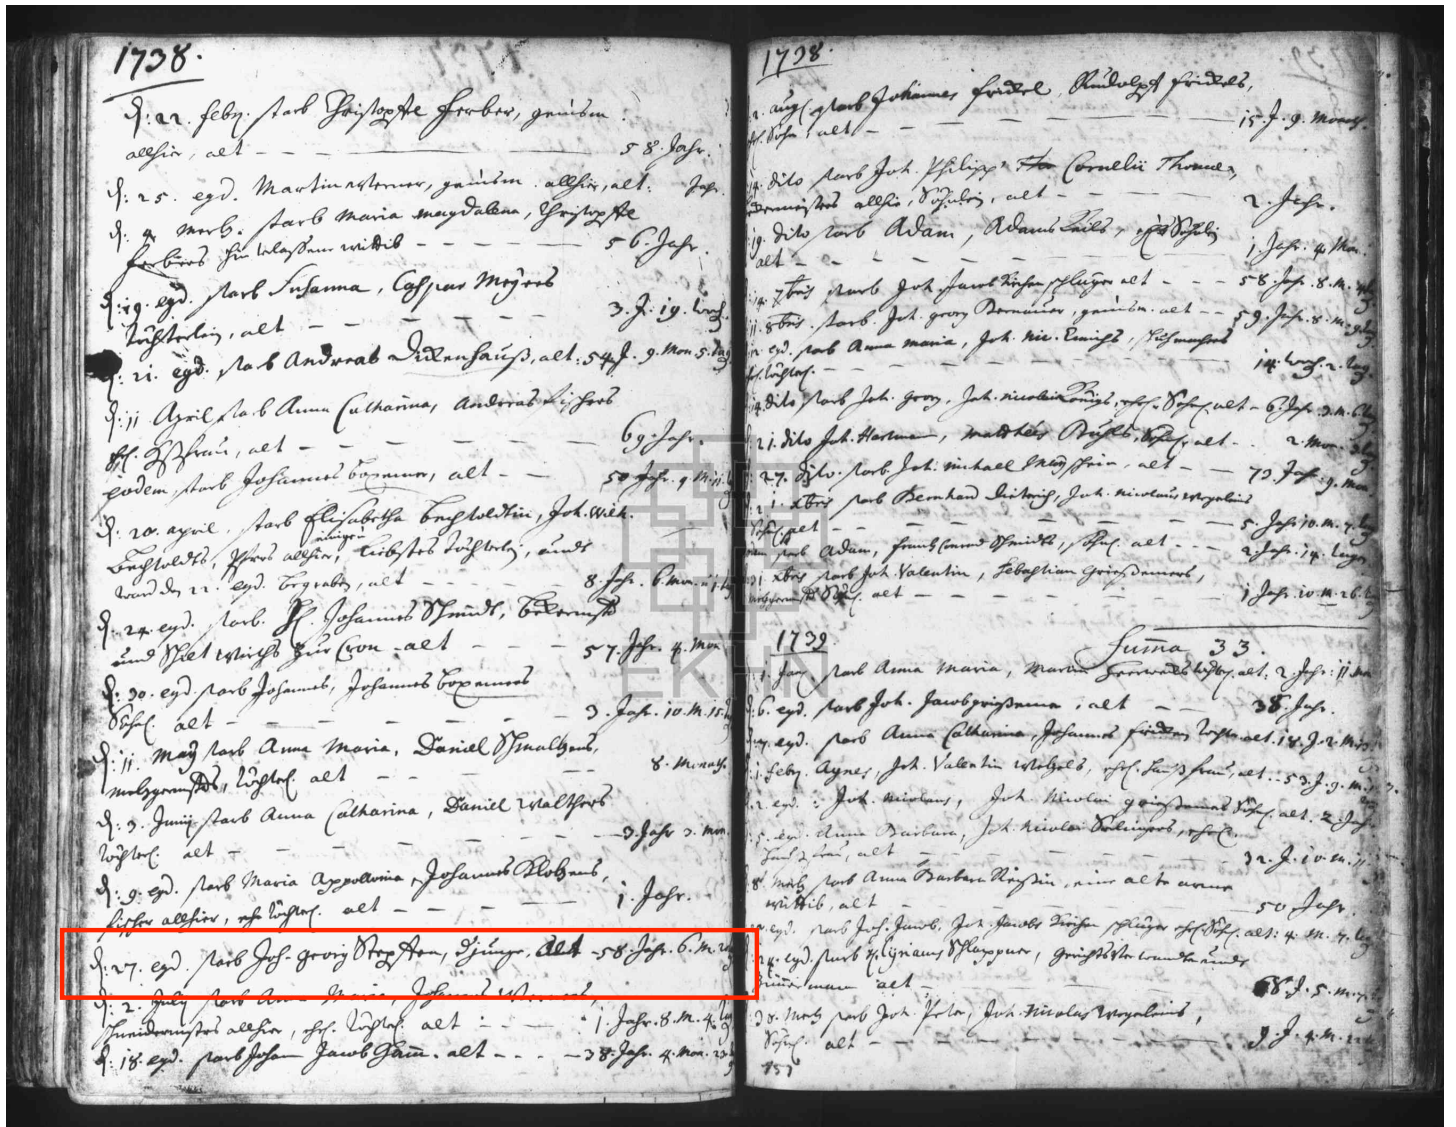 1738.
d: 22. feb. starb Christoffel Ferber, gemeinsm.
allhier, alt 58. Jahr.
d: 25. egd. Martin Werner, gemeinsm. allhier, alt: Jahr.
d: 4. Mertz. starb Maria Magdalena, Christoffel
Ferbers hinterlassene wittib 56. Jahr.
d: 19. egd. starb Susanna, Caspar Meyers
töchterlein, alt 3. J. 19. woch.
d: 21. egd. starb Andreas, alt: 54 J. 9. Mon. 5. tag
d: 11 April starb Anna Catharina, Andreas Fischers
ehel. Haußfrau, alt 69. Jahr.
eodem, starb Johannes, alt 50 Jahr. 9 M. 11.
d. 20. april. starb Elisabetha Bechtoldtin, Joh. Wilh.
Bechtoldts, Pfrs allhier, einziges liebstes töchterlein, undt
ward den 22. egd. begraben, alt 8. Jahr. 6. Mon.
d. 24. egd. starb. H. Johannes Schmidt,
und Schiltwirth zur Cron alt 57. Jahr. 4. Mon.
d: 30. egd. starb Johannes, Johannes
Söhnl. alt 3. Jahr. 10. M. 15.
d: 11. May starb Anna Maria, Daniel Schmaltzens,
metzgermstrs, töchterl. alt 8. Monath.
d: 3. Junij starb Anna Catharina, Daniel Walthers
töchterl. alt 3. Jahr 3. Mon.
d: 9. egd. starb Maria Appollonia, Johannes Klotzens,
fischer allhier, ehel. töchterl. alt 1. Jahr.
d: 27. egd. starb Joh. Georg Stephan, d. junge, alt 58. Jahr. 6. M.
d: 2. July starb Anna Maria, Johannes Werners,
schneidermstrs allhier, ehel. töchterl. alt 1. Jahr. 8. M. 4. tag
d: 18. egd. starb Johann Jacob alt 38. Jahr. 4. Mon. 23
1738
2. aug. starb Johannes Fridel, Rudolph Fridels,
ehel. Sohn, alt 15. J. 9. Monath.
dito starb Joh. Philipp Cornelii Thomae,
allhier, Söhnlein, alt 2. Jahr.
19. dito starb Adam, Adam Keils, ehel. Söhnlein
alt 1. Jahr. 4. Mon.
14. 7bris starb Joh. Jacob Kirchenschläger alt 58. Jahr. 8. M.
11. 8bris. starb. Joh. Georg Bernauer, gemeinsm. alt 59. Jahr. 8. M.
egd. starb Anna Maria, Joh. Nic. Emichs, schuhmachers
töchterl. 14. woch. 2. tag.
14. dito starb Joh. Georg, Joh. Nicolai Königs, ehel. Söhnl. alt 6. Jahr. 3. M. 6.
21. dito Joh. Hartman, Matthes Söhnl. alt 2. Mon.
27. dito. starb Joh. Michael, alt 73. Jahr. 9. Mon.
1. xbris starb Bernhard Dieterich, Joh. Nicolaus Wegelins
Söhnl. alt 5. Jahr. 10. M. 7. tag
starb Adam, Frantz Conrad Schmidts, söhnl. alt 2. Jahr. 14. tage
31. xbris starb Joh. Valentin, Sebastian Grießemers,
Söhnl. alt 1 Jahr. 10. M. 26. tag
Summa 33.
1739
1. Jan. starb Anna Maria, Martin töchterl. alt: 2. Jahr: 11 Mon
6. egd. starb Joh. Jacob Grießemer, alt 38. Jahr.
egd. starb Anna Catharina, Johannes Fridels tochter alt. 18. J. 2. M.
1. feb. Agnes, Joh. Valentin Wetzels, ehel. haußfrau, alt. 53. J. 9. M.
2. egd: Joh. Nicolaus, Joh. Nicolai Grießemers Söhnl. alt. 2. Jahr.
5. egd. Anna Barbara, Joh. Nicolai ehel.
haußfrau, alt 32. J. 10. M. 11.
8. Mertz starb Anna Barbara, eine alte arme
wittib, alt 50 Jahr.
egd. starb Joh. Jacob, Joh. Jacobs Kirchenschläger ehel. Söhnl. alt: 4. M. 7. tag
24. egd. starb H. Cyriacus Schlappner, gerichtsverwandter undt
alt 68. J. 5. M.
28. Mertz starb Joh. Peter, Joh. Nicolas Wegelins,
Söhnl. alt 9. J. 4. M. 22
151
EKHN